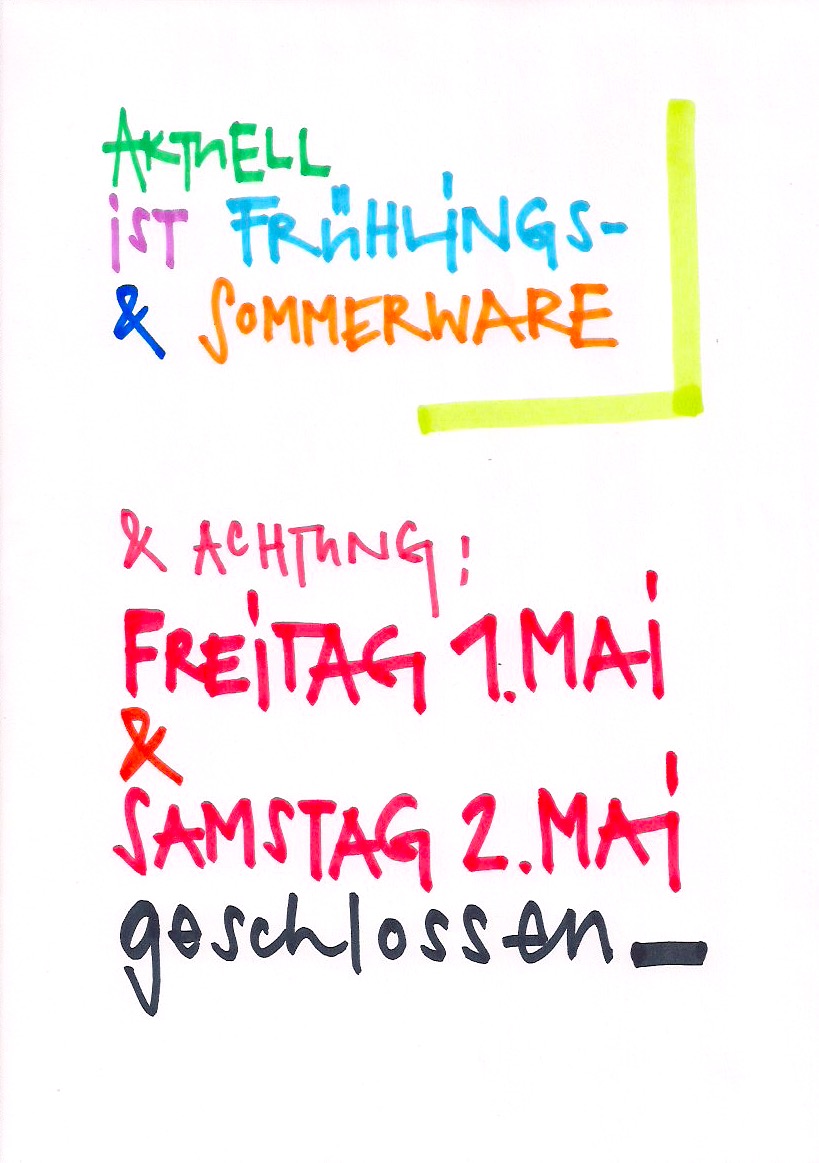 AKTUELL
iST FRÜHLiNGS-
& SOMMERWARE
& ACHTUNG:
FREiTAG 1.MAi
&
SAMSTAG 2.MAi
geschlossen_